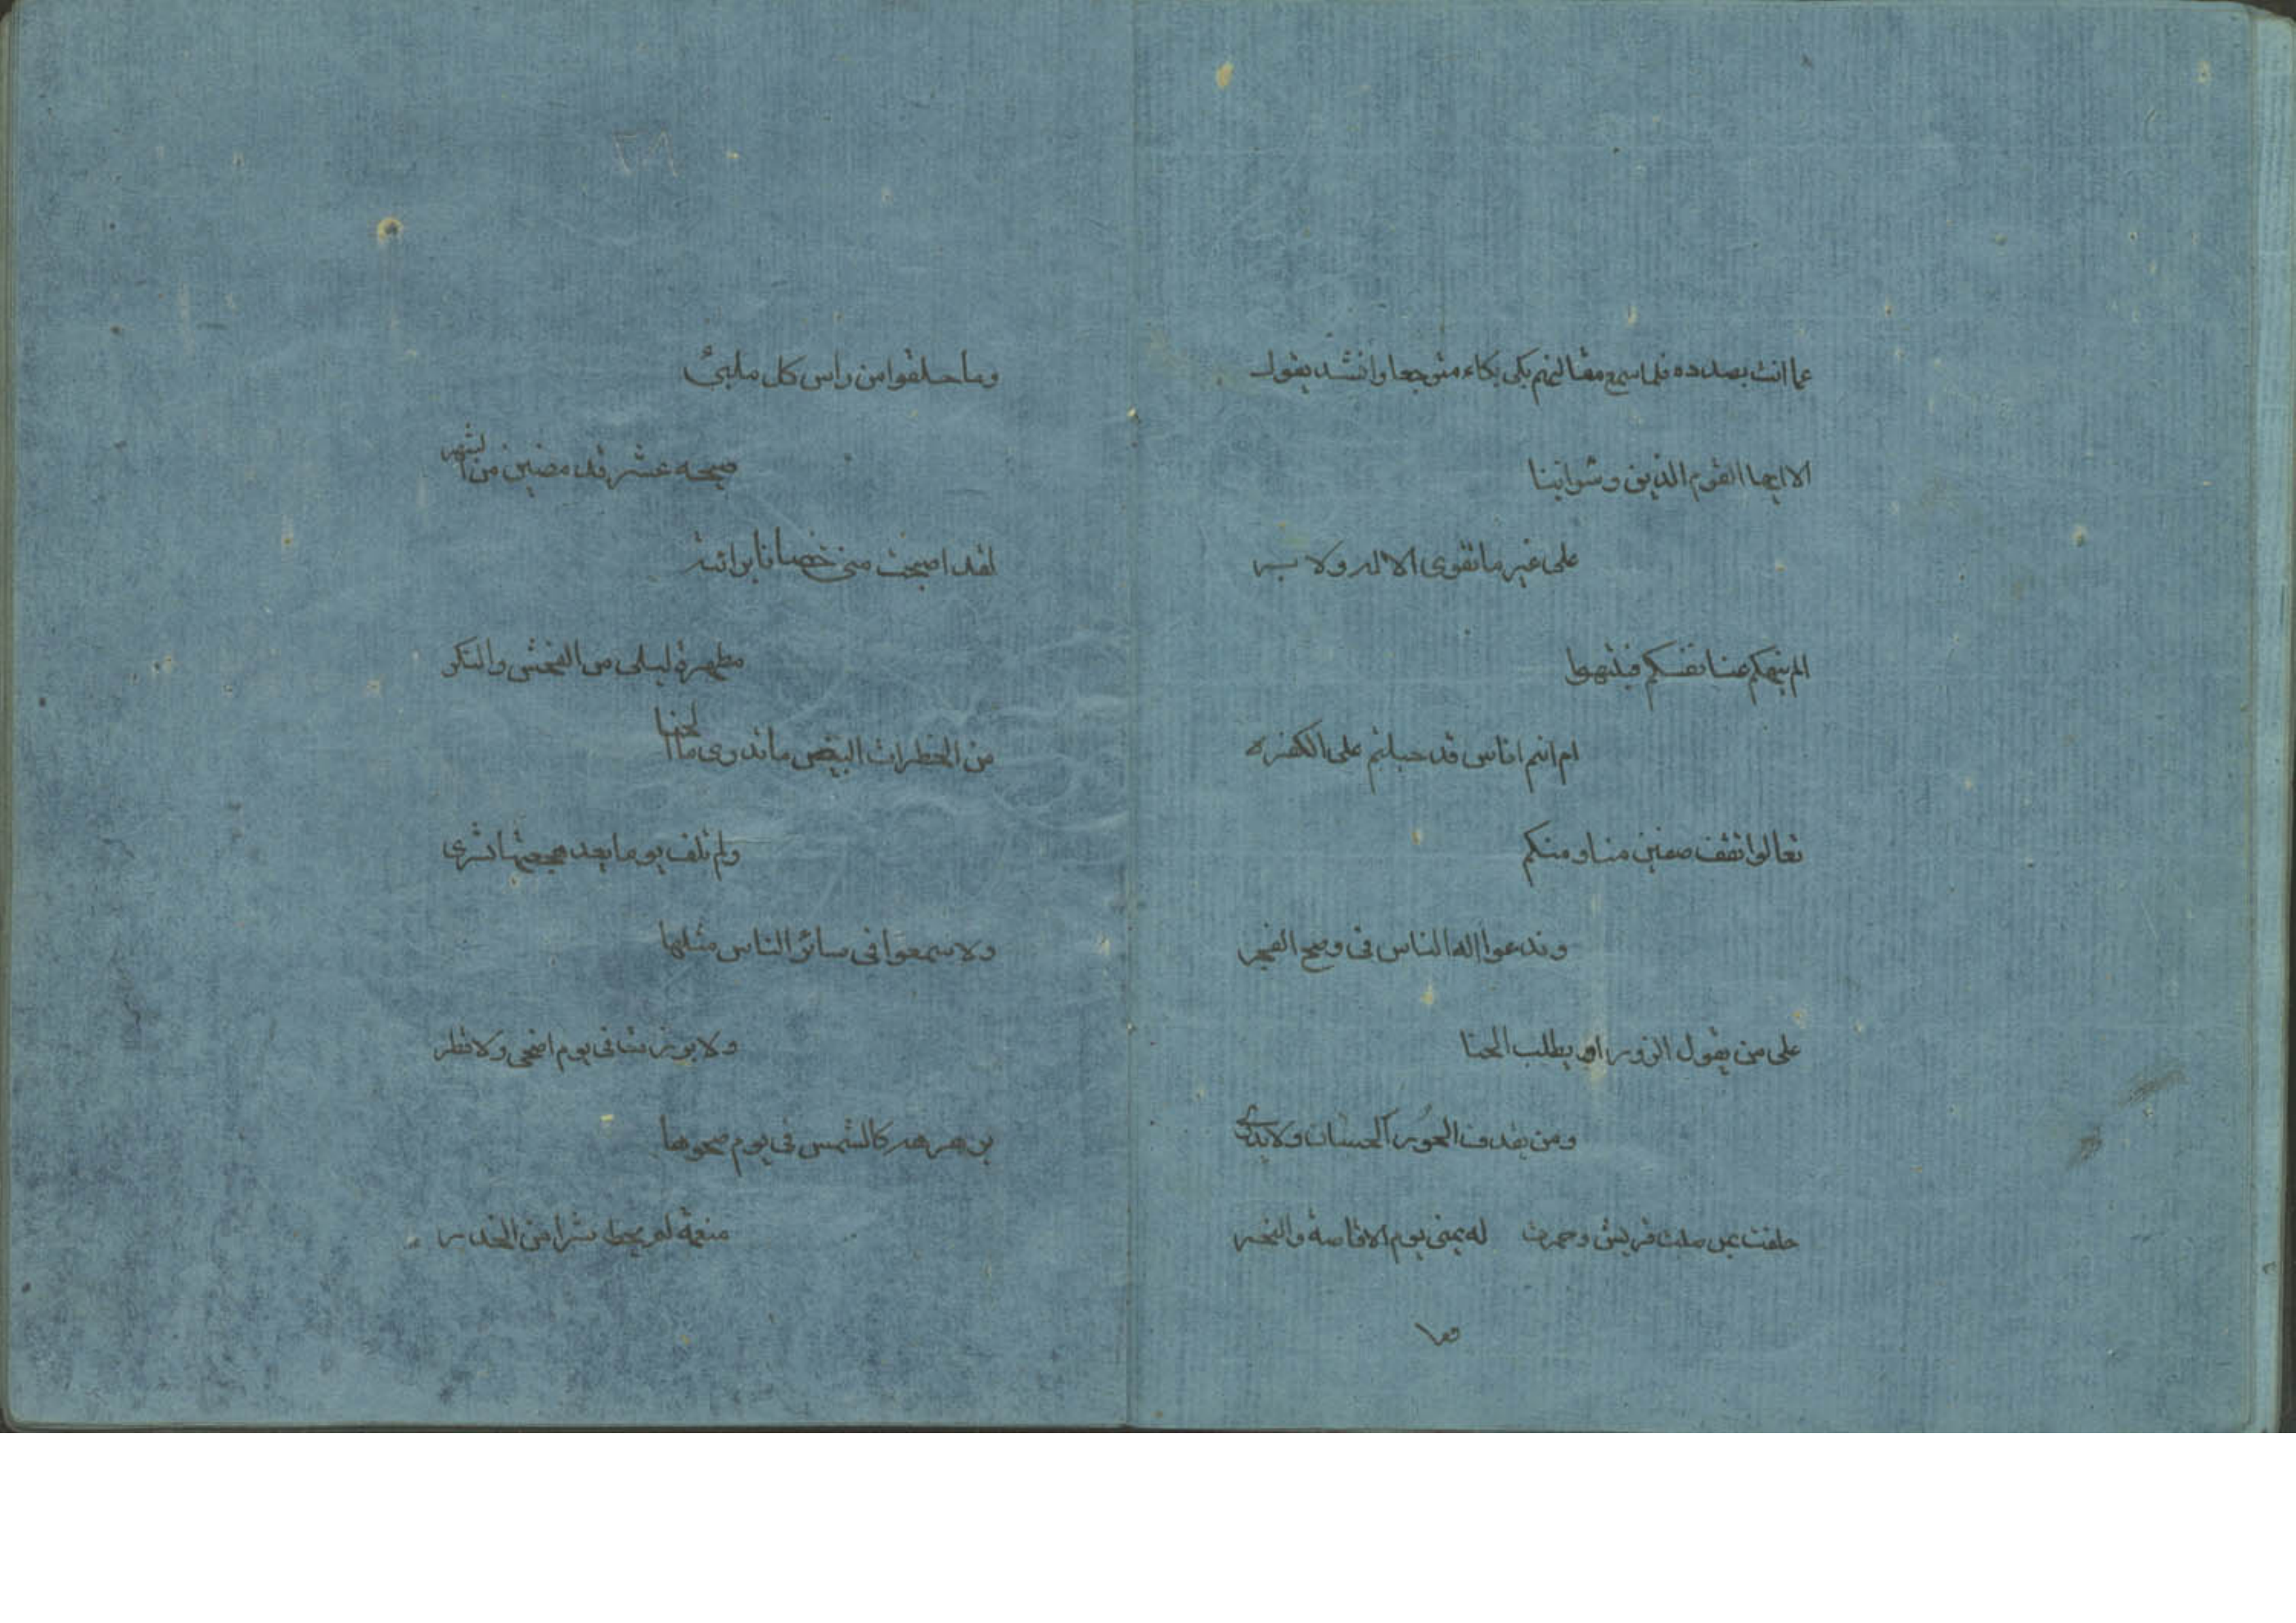 عما انت بصدده فلما سمع مقالتهم بكى بكاء متوجعا وانشد يقول
الا ايها القوم الذين وشوا بيننا
على غير ما تقوى الاله ولا بر
الم ينهكم عنا تقنكم فتنتهوا
ام انتم اناس قد جبلتم على الكفره
تعالوا نقف صفين منا ومنكم
وندعوا اله الناس فى وضح الفجر
على من يقول الزور او يطلب الخنا
ومن يقذف الحور الحسان ولا يدرى
حلفت بمن صلت قريش وجمرت له بمنى يوم الافاضة والنحر
وما
وما حلقوا من راس كل ملبئ
صبيحه عشر قد مضين من الشهر
لقد اصبحت منى حصانا برائة
مطهرة ليلى من الفحش والنكر
من الخطرات البيض ما تدرى ما الخنا
ولم تلف يوما بعد هجعتها تسرى
ولا سمعوا فى سائر الناس مثلها
ولا برزت فى يوم اضحى ولا فطر
برهرهه كالشمس فى يوم صحوها
منعمة لم يخط شرا من الخدر
٢٨